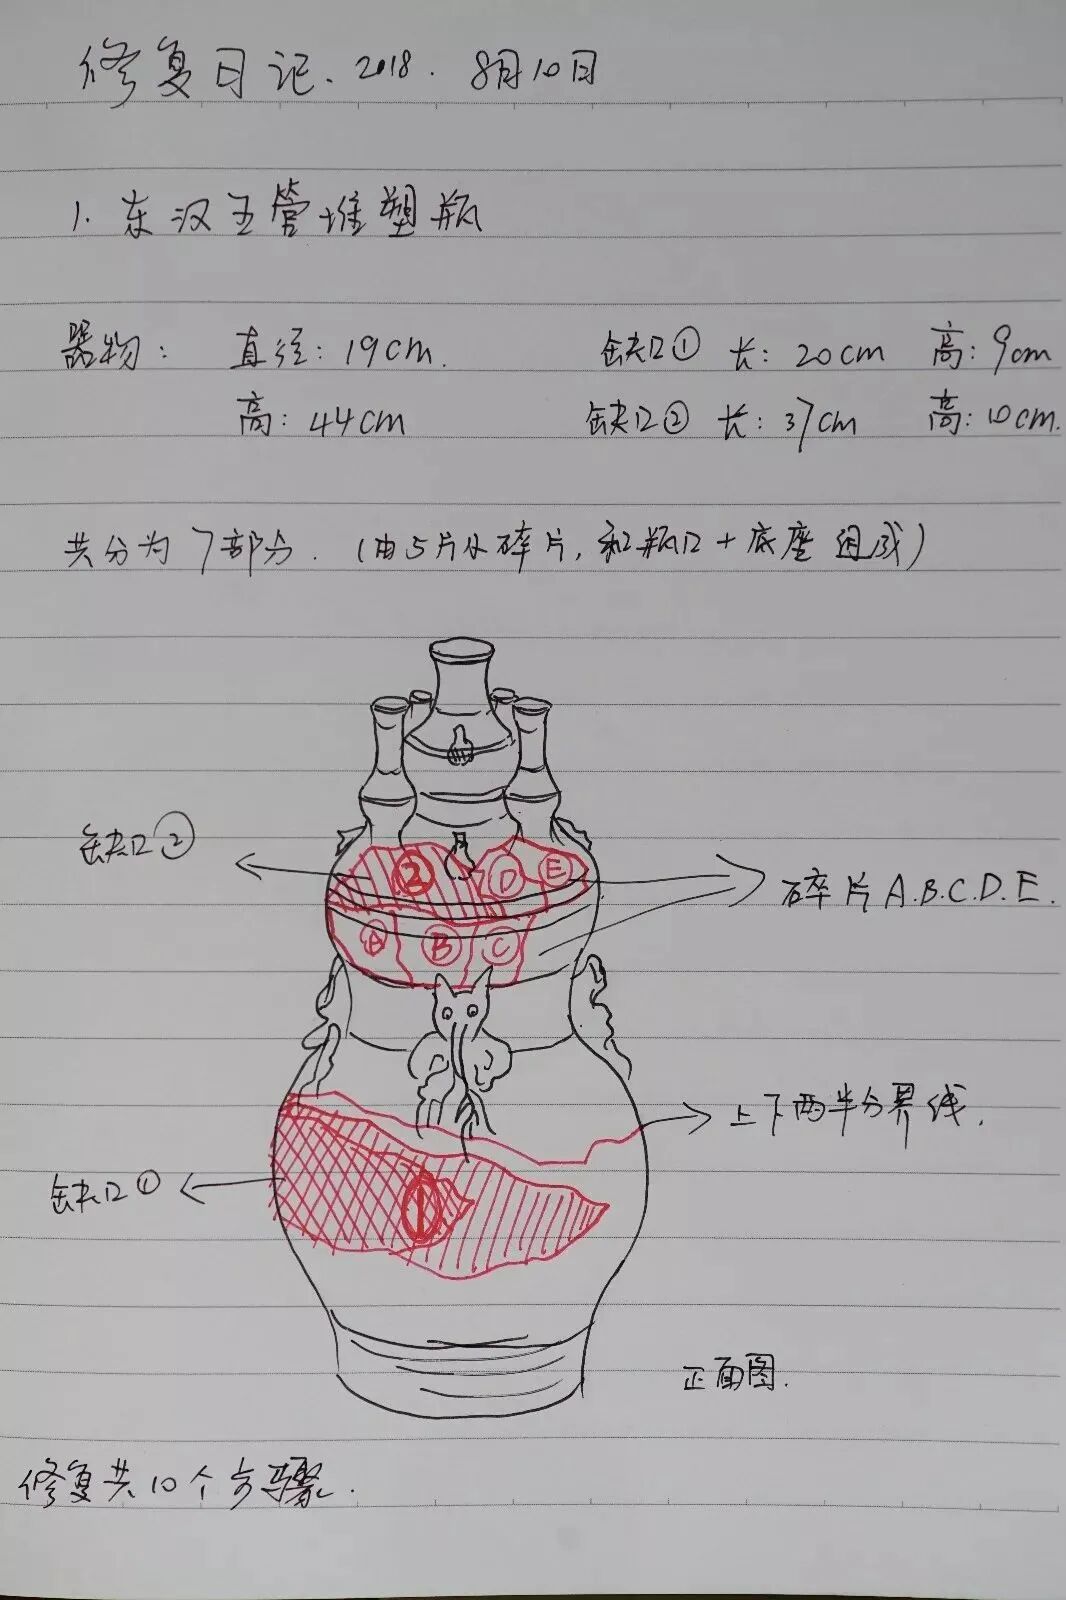 修复日记. 2018. 8月10日
1. 东汉五管堆塑瓶
器物: 直径: 19cm. 缺口① 长: 20cm 高: 9cm
高: 44cm 缺口② 长: 37cm 高: 10cm.
共分为7部分. (由5片小碎片, 和瓶口+底座组成)
缺口②
2 D E
碎片A.B.C.D.E.
A B C
上下两半分界线.
缺口①
1
正面图.
修复共10个步骤.